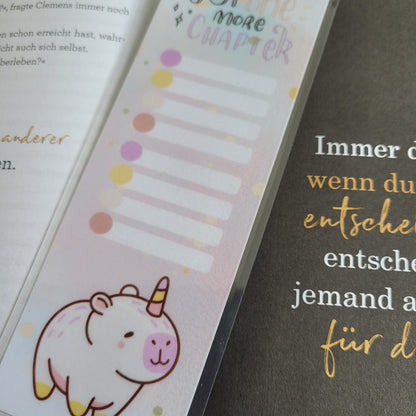 fragte Clemens immer noch
en schon erreicht hast, wahr-
icht auch sich selbst.
berleben?«
anderer
en.
MORE
CHAPTER
Immer d
wenn du
entsche
entsche
jemand a
für d